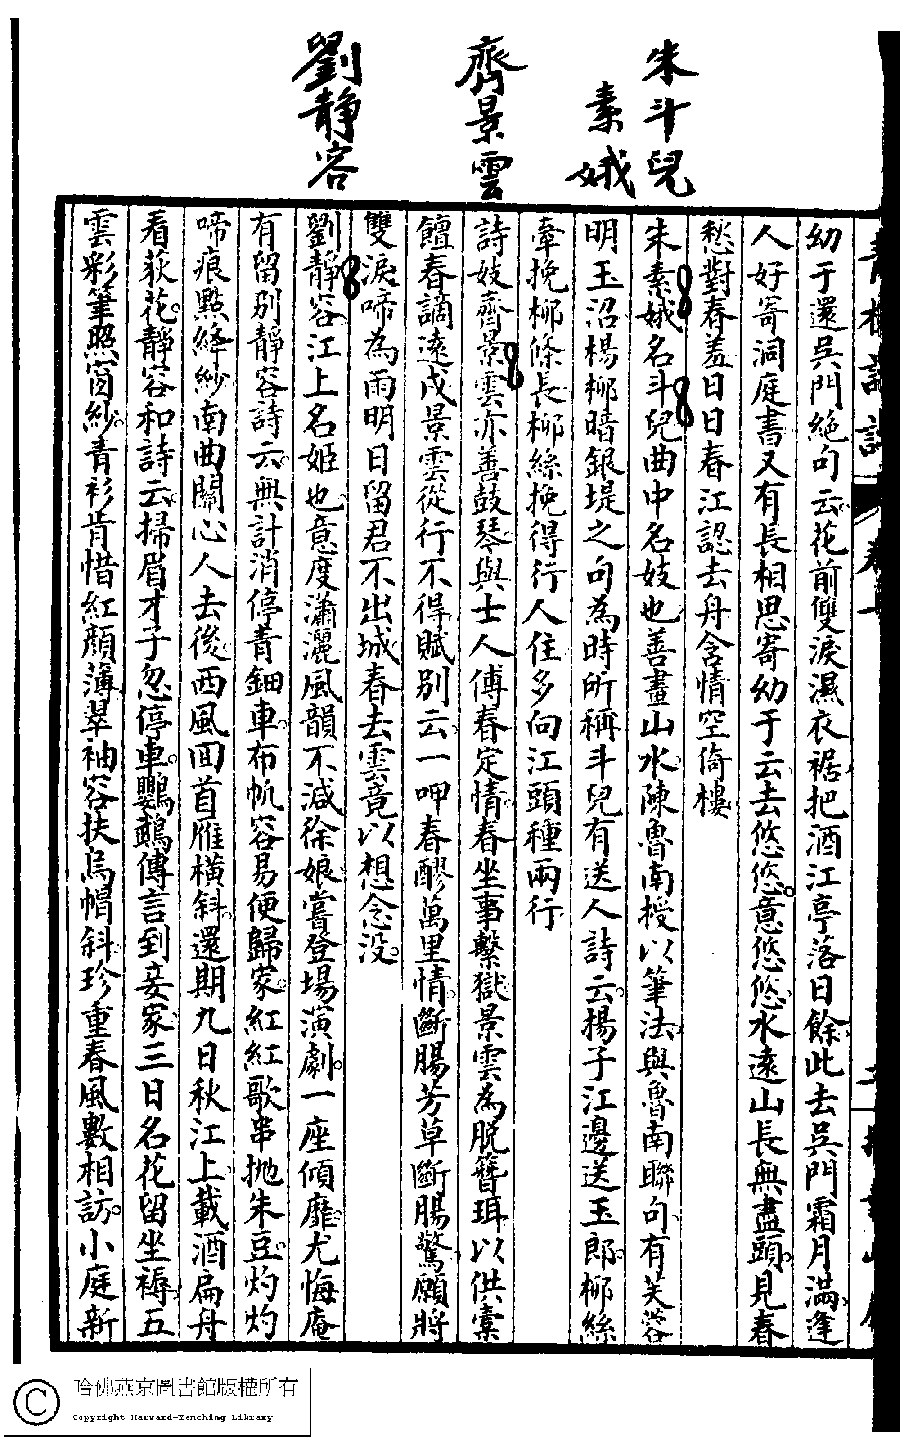 朱斗兒
素娥
齊景雲
劉靜容
幼于還吳門絶句云花前雙淚濕衣裾把酒江亭落日餘此去吳門霜月滿逢
人好寄洞庭書又有長相思寄幼于云去悠悠意悠悠水遠山長無盡頭見春
愁對春羞日日春江認去舟含情空倚樓
朱素娥名斗兒曲中名妓也善畫山水陳魯南授以筆法與魯南聯句有芙蓉
明玉沼楊柳暗銀堤之句為時所稱斗兒有送人詩云揚子江邊送玉郎柳絲
牽挽柳條長柳絲挽得行人住多向江頭種兩行
詩妓齊景雲亦善鼓琴與士人傅春定情春坐事繫獄景雲為脫簪珥以供橐
饘春謫遠戍景雲從行不得賦別云一呷春醪萬里情斷腸芳草斷腸鶯願將
雙淚啼為雨明日留君不出城春去雲竟以想念没
劉靜容江上名姬也意度瀟灑風韻不減徐娘嘗登場演劇一座傾靡尤悔庵
有留別靜容詩云無計消停青鈿車布帆容易便歸家紅紅歌串抛朱豆灼灼
啼痕點絳紗南曲關心人去後西風回首雁橫斜還期九日秋江上載酒扁舟
看荻花靜容和詩云掃眉才子忽停車鸚鵡傳言到妾家三日名花留坐褥五
雲彩筆照窗紗青衫肯惜紅顏薄翠袖容扶烏帽斜珍重春風數相訪小庭新
哈佛燕京圖書館版權所有
Copyright Harvard-Yenching Library